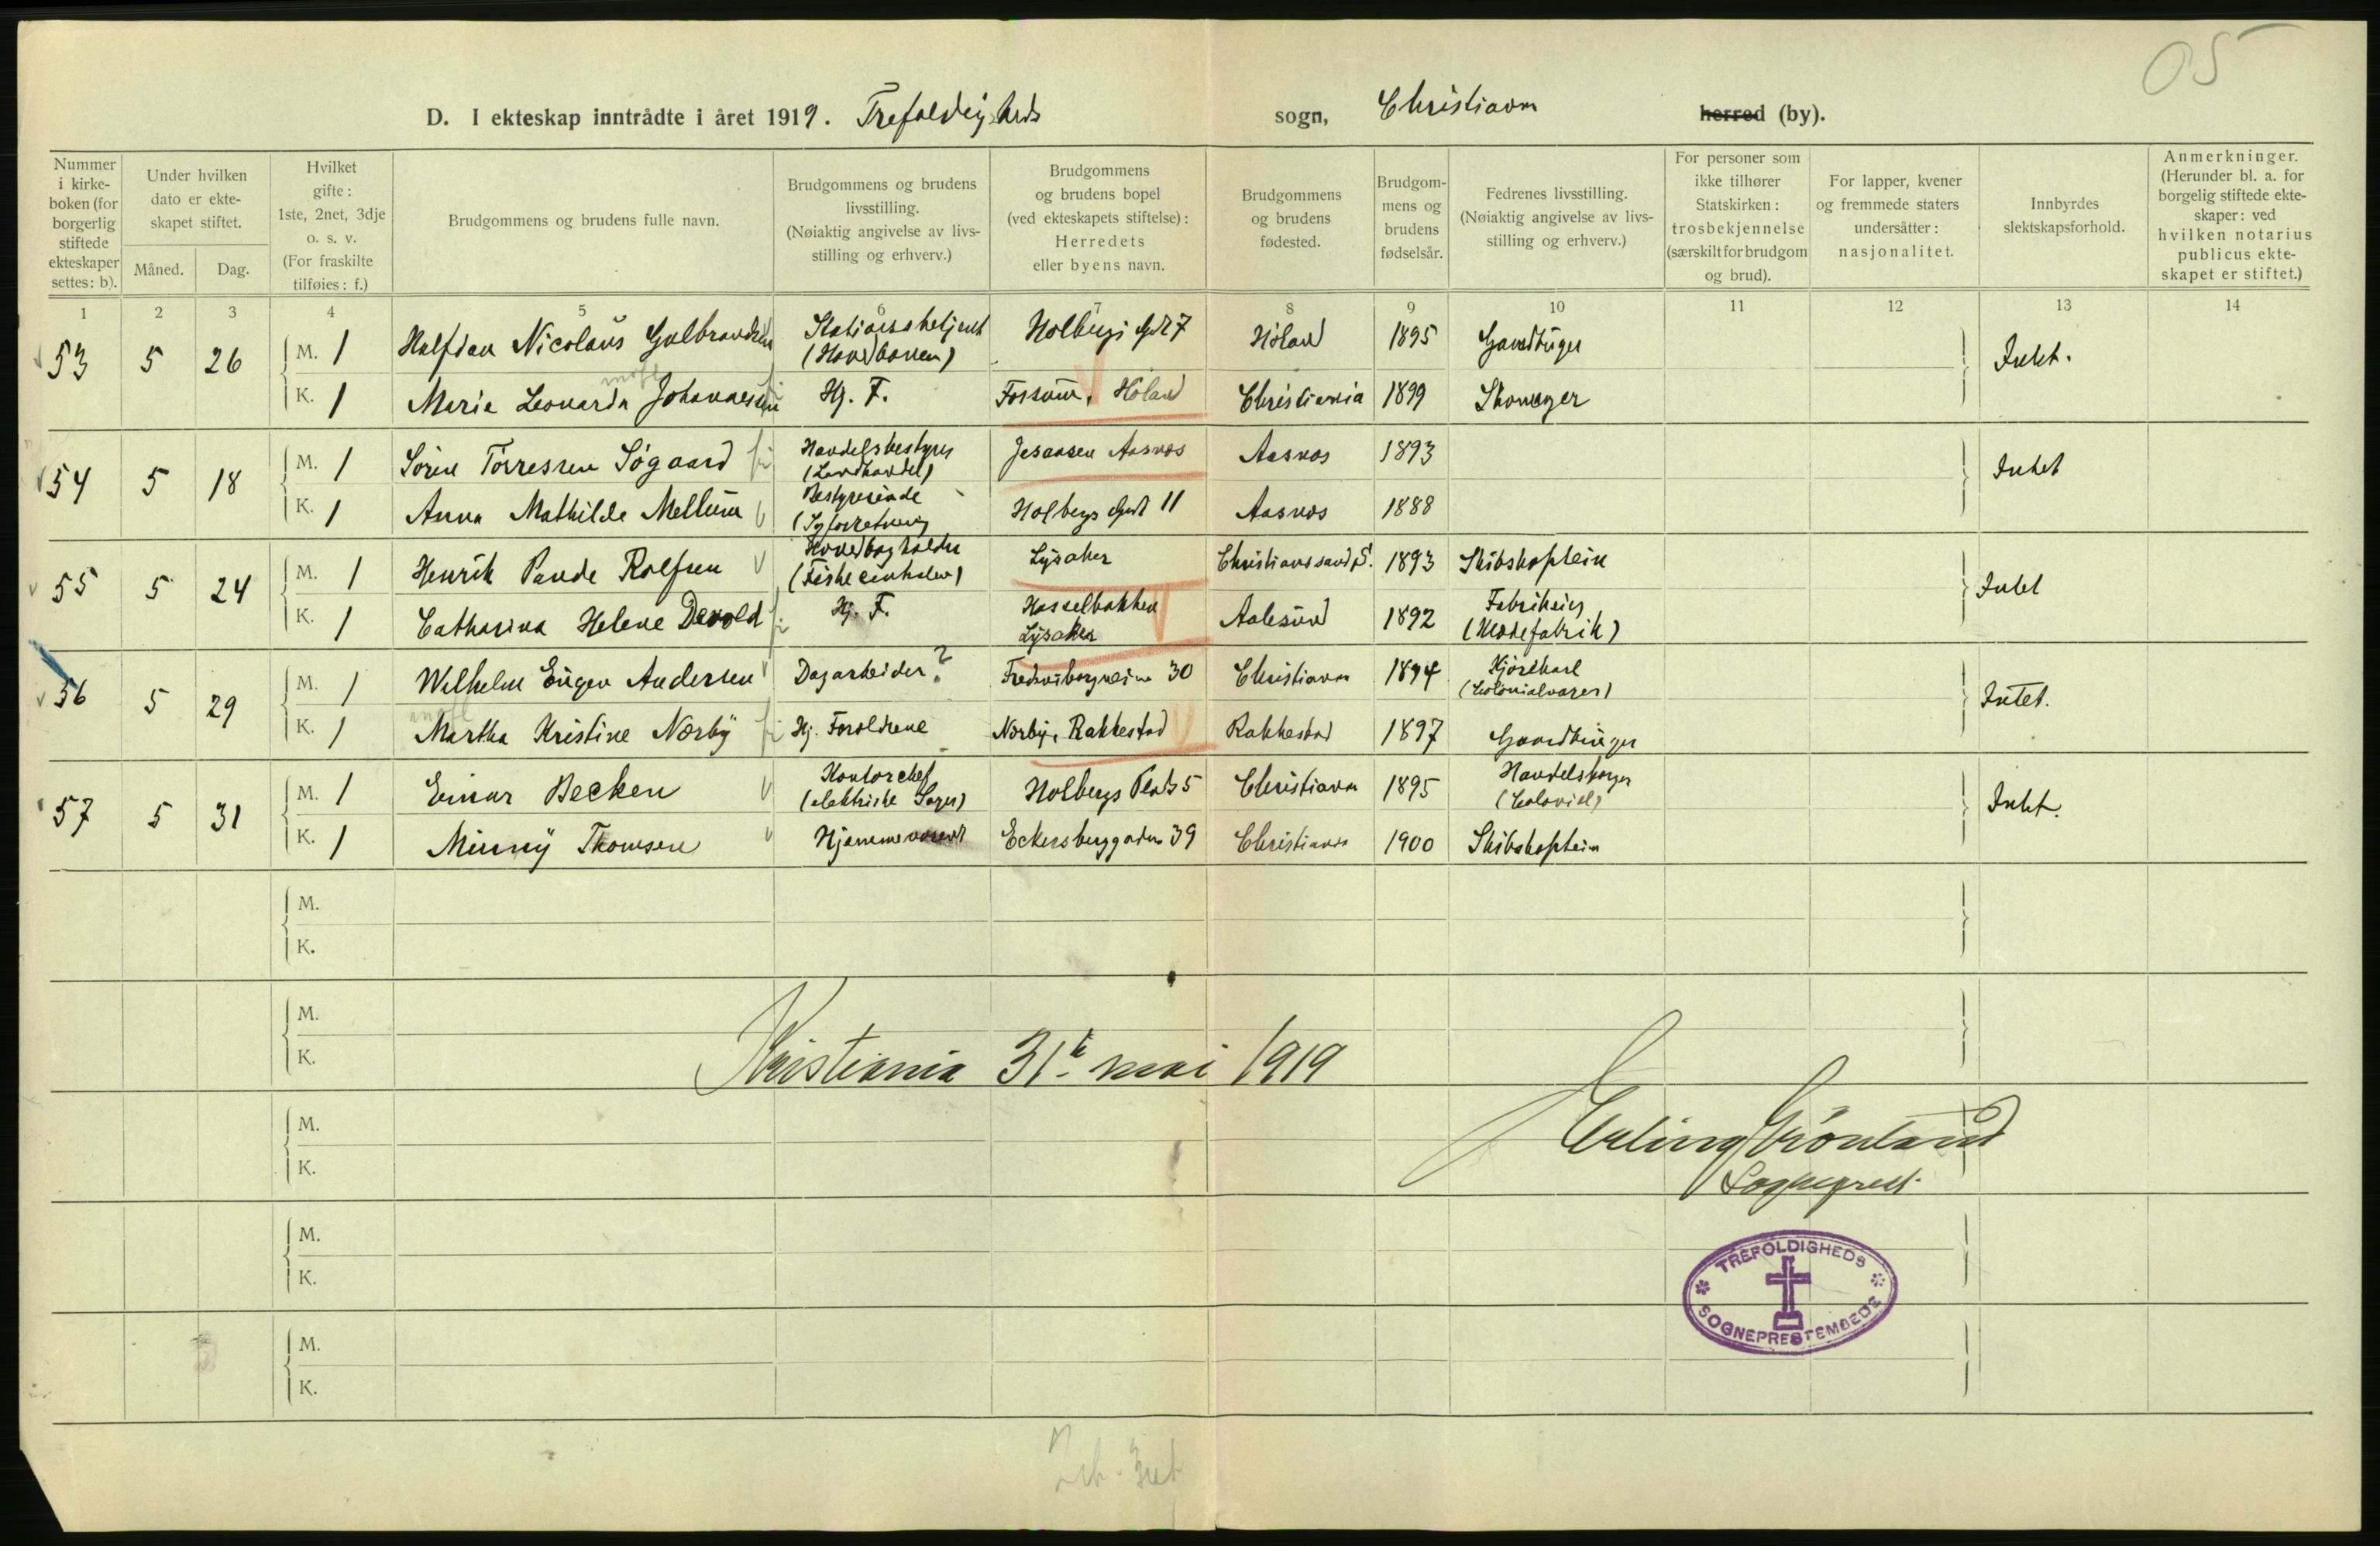 05
D. I ekteskap inntrådte i året 1919. Trefoldigheds sogn, Christiania herred (by).
Nummer i kirke-boken (for borgerlig stiftede ekteskaper settes: b).
Under hvilken dato er ekte-skapet stiftet.
Måned.
Dag.
Hvilket gifte: 1ste, 2net, 3dje o. s. v. (For fraskilte tilføies: f.)
Brudgommens og brudens fulle navn.
Brudgommens og brudens livsstilling. (Nøiaktig angivelse av livs-stilling og erhverv.)
Brudgommens og brudens bopel (ved ekteskapets stiftelse): Herredets eller byens navn.
Brudgommens og brudens fødested.
Brudgom-mens og brudens fødselsår.
Fedrenes livsstilling. (Nøiaktig angivelse av livs-stilling og erhverv.)
For personer som ikke tilhører Statskirken: trosbekjennelse (særskilt for brudgom og brud).
For lapper, kvener og fremmede staters undersåtter: nasjonalitet.
Innbyrdes slektskapsforhold.
Anmerkninger. (Herunder bl. a. for borgelig stiftede ekte-skaper: ved hvilken notarius publicus ekte-skapet er stiftet.)
1 2 3 4 5 6 7 8 9 10 11 12 13 14
53 5 26 M. 1 Halfdan Nicolaus Gulbrandsen Stationsbetjent (Hovedbanen) Holbergs Gdt 7 Høland 1895 Gaardbruger Intet.
K. 1 Marie Leonarda Johannessen Hj. F. Fossum, Høland Christiania 1899 Skomager
54 5 18 M. 1 Sören Torressen Sögaard Handelsbestyrer (Landhandel) Jesaasen Aasnes Aasnes 1893 Intet
K. 1 Anna Mathilde Mellum Bestyrerinde (Syforretning Holbergs Gdt 11 Aasnes 1888
55 5 24 M. 1 Henrik Pande Rolfsen Hovedbogholder (Fiskecentralen) Lysaker Christianssand S. 1893 Skibskaptein Intet
K. 1 Catharina Helene Devold Hj. F. Hasselbakken Lysaker Aalesund 1892 Fabrikeier (Klædefabrik)
56 5 29 M. 1 Wilhelm Eugen Andersen Dagarbeider? Fredensborgveien 30 Christiania 1894 Kjørekarl (Colonialvarer) Intet.
K. 1 Martha Kristine Nærby Hj. Forældrene Nærby, Rakkestad Rakkestad 1897 Gaardbruger
57 5 31 M. 1 Einar Becken Kontorchef (elektriske Sager) Holbergs Plads 5 Christiania 1895 Handelsborger (Colonial) Intet.
K. 1 Minny Thomsen Hjemmeværende Eckersberggaden 39 Christiania 1900 Skibskaptein
M.
K.
M.
K.
Kristiania 31te mai 1919
M.
K.
Erling Grönland
Sogneprest.
M.
K.
TREFOLDIGHEDS
SOGNEPRESTEMBEDE
M.
K.